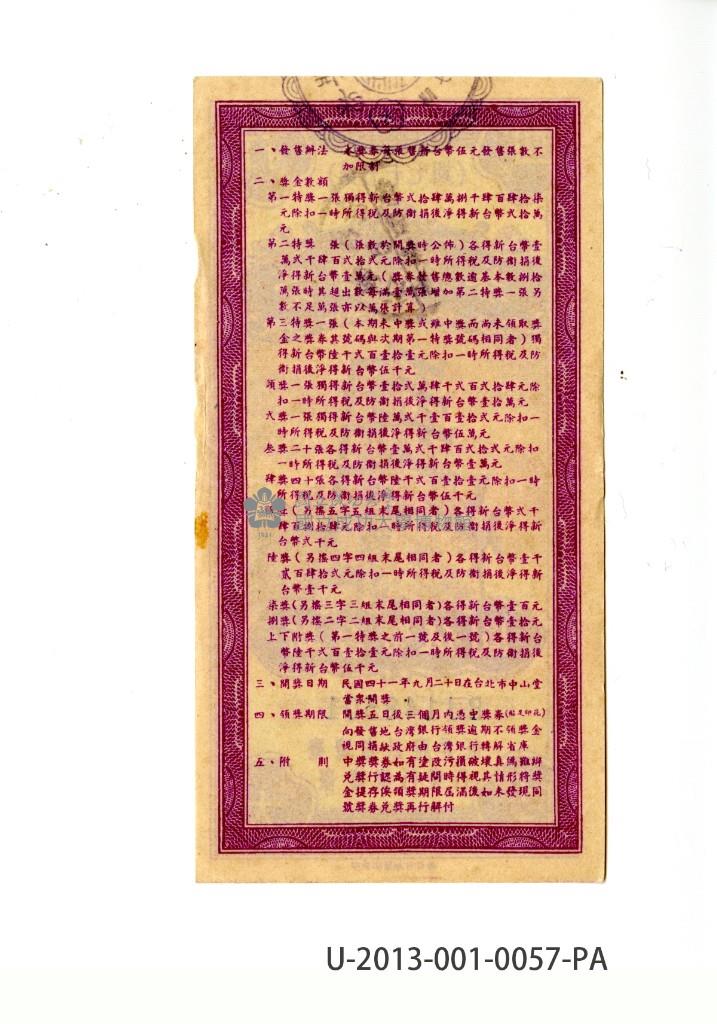 一、發售辦法　本獎券每張售新台幣伍元發售張數不
加限制
二、獎金數額
第一特獎一張獨得新台幣弍拾肆萬捌千肆百肆拾柒
元除扣一時所得稅及防衛捐後淨得新台幣弍拾萬
元
第二特獎　張（張數於開獎時公佈）各得新台幣壹
萬弍千肆百弍拾弍元除扣一時所得稅及防衛捐後
淨得新台幣壹萬元（獎券發售總數逾基本數捌拾
萬張時其超出數每滿壹萬張增加第二特獎一張另
數不足萬張亦以萬張計算）
第三特獎一張（本期未中獎或雖中獎而尚未領取獎
金之獎券其號碼與次期第一特獎號碼相同者）獨
得新台幣陸千弍百壹拾壹元除扣一時所得稅及防
衛捐後淨得新台幣伍千元
頭獎一張獨得新台幣壹拾弍萬肆千弍百弍拾肆元除
扣一時所得稅及防衛捐後淨得新台幣壹拾萬元
弍獎一張獨得新台幣陸萬弍千壹百壹拾弍元除扣一
時所得稅及防衛捐後淨得新台幣伍萬元
叁獎二十張各得新台幣壹萬弍千肆百弍拾弍元除扣
一時所得稅及防衛捐後淨得新台幣壹萬元
肆獎四十張各得新台幣陸千弍百壹拾壹元除扣一時
所得稅及防衛捐後淨得新台幣伍千元
伍獎（另搖五字五組末尾相同者）各得新台幣弍千
肆百捌拾肆元除扣一時所得稅及防衛捐後淨得新
台幣弍千元
陸獎（另搖四字四組末尾相同者）各得新台幣壹千
貳百肆拾弍元除扣一時所得稅及防衛捐後淨得新
台幣壹千元
柒獎（另搖三字三組末尾相同者）各得新台幣壹百元
捌獎（另搖二字二組末尾相同者）各得新台幣壹拾元
上下附獎（第一特獎之前一號及後一號）各得新台
幣陸千弍百壹拾壹元除扣一時所得稅及防衛捐後
淨得新台幣伍千元
三、開獎日期　民國四十一年九月二十日在台北市中山堂
當衆開獎
四、領獎期限　開獎五日後三個月內憑中獎券（貼足印花）
向發售地台灣銀行領獎逾期不領獎金
視同捐献政府由台灣銀行轉解省庫
五、附　　則　中獎獎券如有塗改污損破壞真偽難辨
兌獎行認為有疑問時得視其情形將獎
金提存俟領獎期限屆滿後如未發現同
號獎券兌獎再行解付
U-2013-001-0057-PA